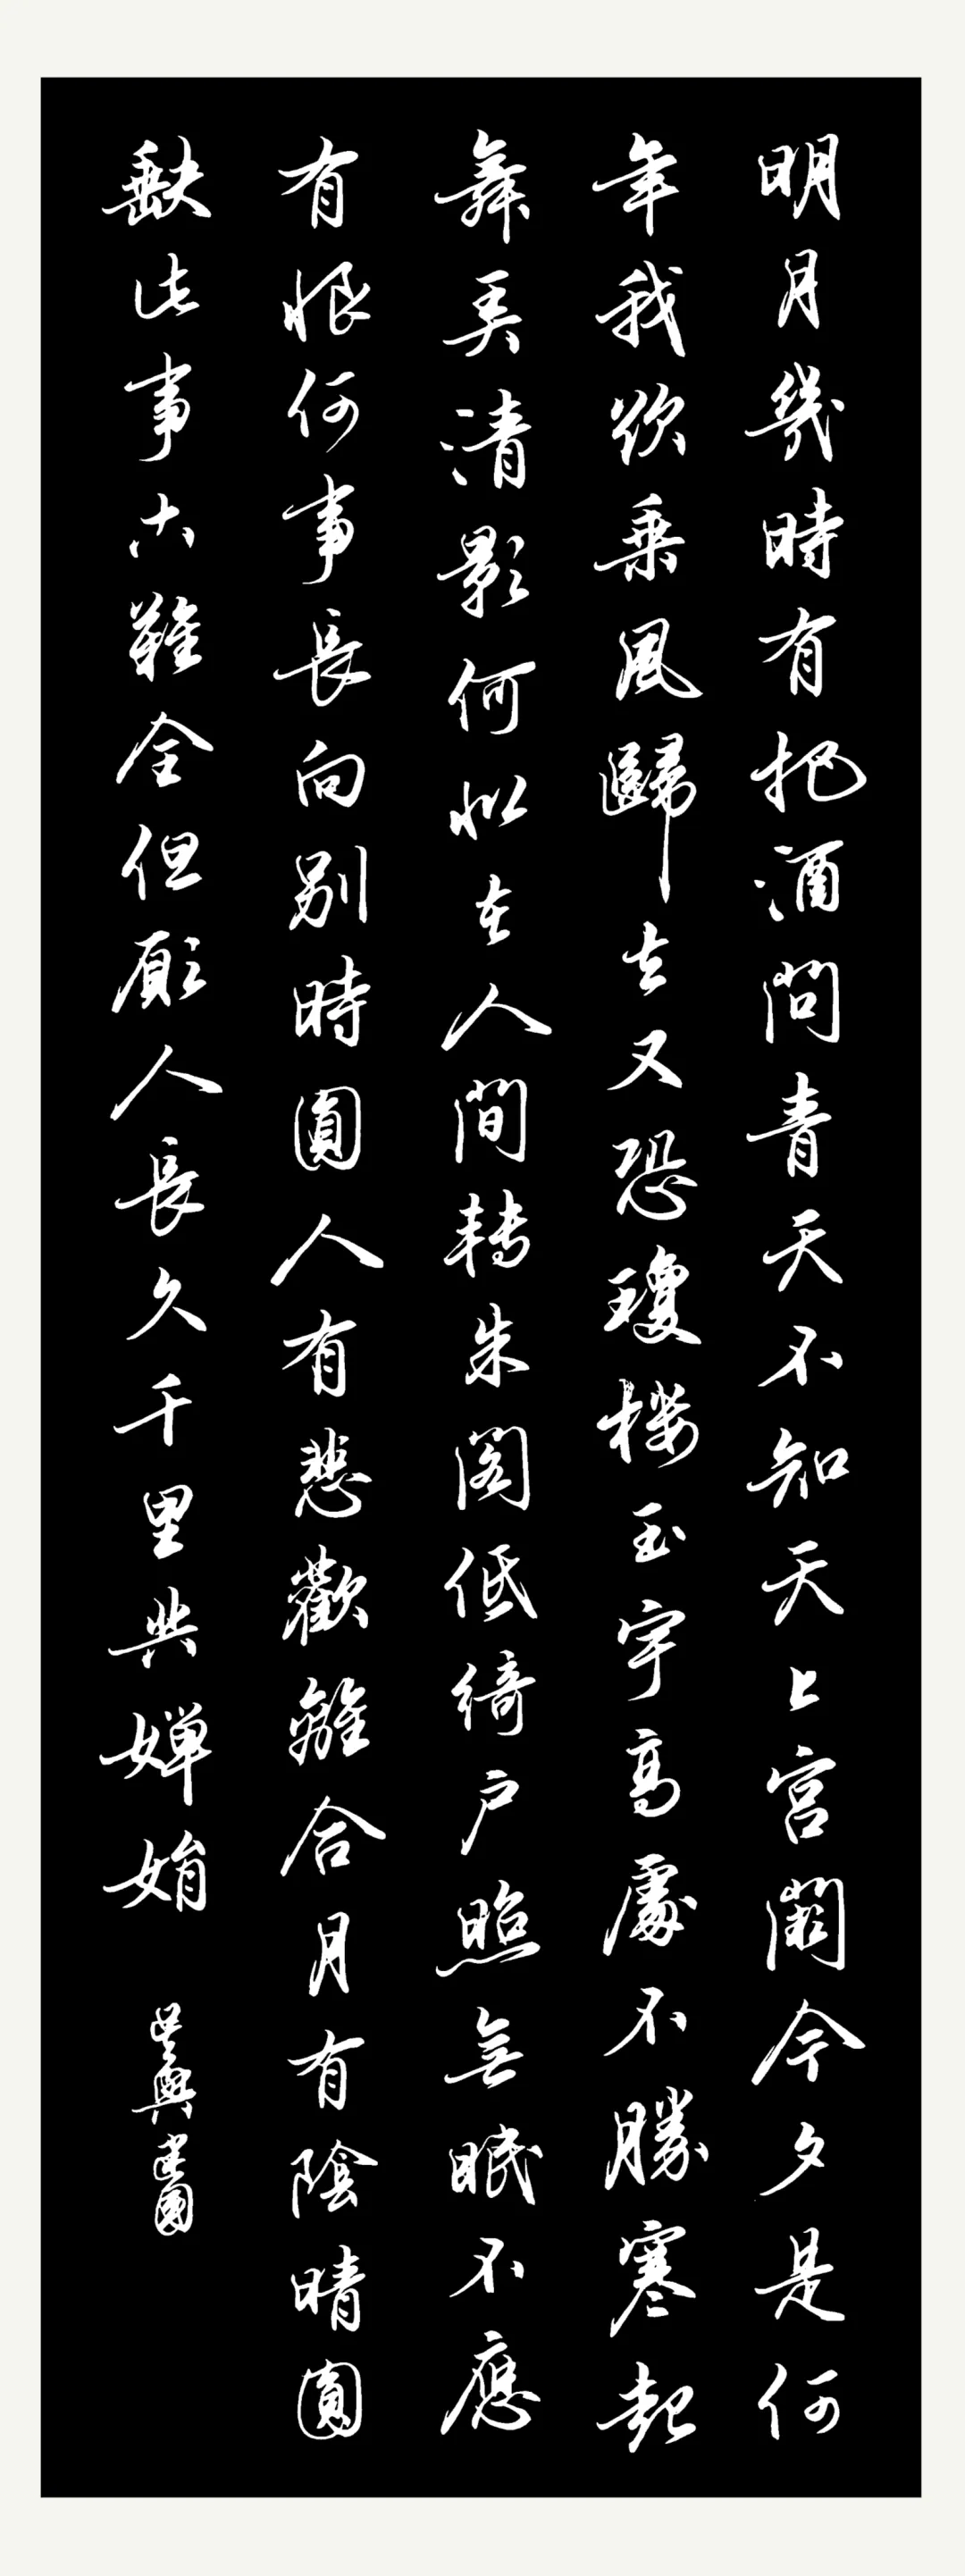 明月幾時有把酒問青天不知天上宮闕今夕是何
年我欲乘風歸去又恐瓊樓玉宇高處不勝寒起
舞弄清影何似在人間轉朱閣低綺户照無眠不應
有恨何事長向别時圓人有悲歡離合月有陰晴圓
缺此事古難全但願人長久千里共嬋娟
吳興書國